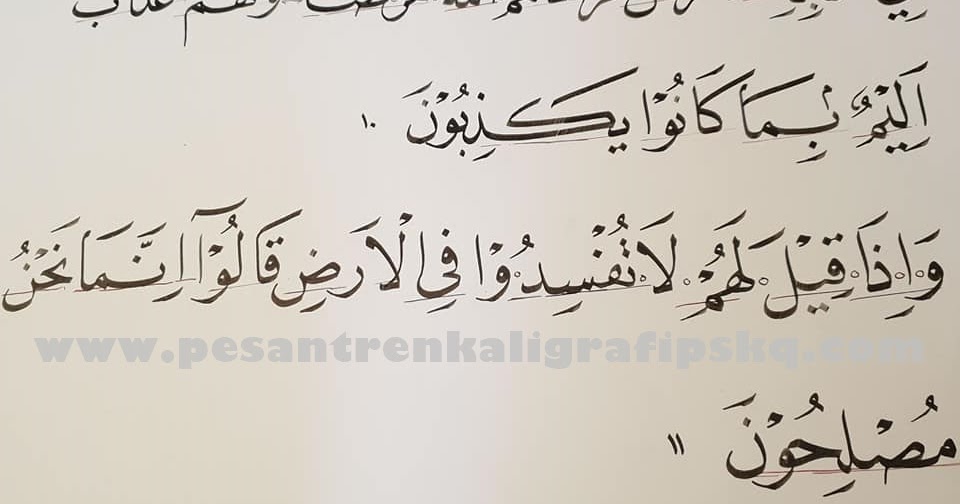 وَلَهُمْ عَذَابٌ
اَلِيْمٌ ۢبِمَا كَانُوْا يَكْذِبُوْنَ ١٠
وَاِذَا قِيْلَ لَهُمْ لَا تُفْسِدُوْا فِى الْاَرْضِ قَالُوْٓا اِنَّمَا نَحْنُ
www.pesantrenkaligrafipskq.com
مُصْلِحُوْنَ ١١